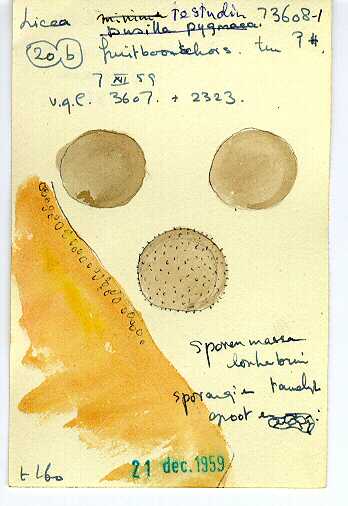 Licea minima testudin 73608-1
pusilla pygmaea
20 b fruitboomschors. tm P #.
7 XII 59
v.g.l. 3607. + 2323.
sporenmassa
donkerbruin
sporangiën
groot
21 dec. 1959